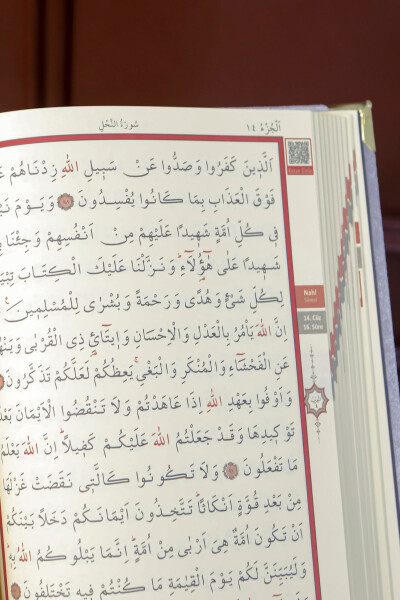 اَلْجُزْءُ ١٤
سُورَةُ النَّحْلِ
اَلَّذ۪ينَ كَفَرُوا وَصَدُّوا عَنْ سَب۪يلِ اللّٰهِ زِدْنَاهُمْ
فَوْقَ الْعَذَابِ بِمَا كَانُوا يُفْسِدُونَ ﴿٨٨﴾ وَيَوْمَ
ف۪ي كُلِّ اُمَّةٍ شَه۪يدًا عَلَيْهِمْ مِنْ اَنْفُسِهِمْ وَجِئْنَا
شَه۪يدًا عَلٰى هٰٓؤُ۬لَٓاءِۜ وَنَزَّلْنَا عَلَيْكَ الْكِتَابَ
لِكُلِّ شَيْءٍ وَهُدًى وَرَحْمَةً وَبُشْرٰى لِلْمُسْلِم۪ينَ۟
اِنَّ اللّٰهَ يَأْمُرُ بِالْعَدْلِ وَالْاِحْسَانِ وَا۪يتَٓائِ ذِي الْقُرْبٰى
عَنِ الْفَحْشَٓاءِ وَالْمُنْكَرِ وَالْبَغْيِۚ يَعِظُكُمْ لَعَلَّكُمْ تَذَكَّرُونَ
وَاَوْفُوا بِعَهْدِ اللّٰهِ اِذَا عَاهَدْتُمْ وَلَا تَنْقُضُوا الْاَيْمَانَ
تَوْك۪يدِهَا وَقَدْ جَعَلْتُمُ اللّٰهَ عَلَيْكُمْ كَف۪يلًاۜ اِنَّ اللّٰهَ
مَا تَفْعَلُونَ ﴿٩١﴾ وَلَا تَكُونُوا كَالَّت۪ي نَقَضَتْ غَزْلَهَا
مِنْ بَعْدِ قُوَّةٍ اَنْكَاثًاۜ تَتَّخِذُونَ اَيْمَانَكُمْ دَخَلًا بَيْنَكُمْ
اَنْ تَكُونَ اُمَّةٌ هِيَ اَرْبٰى مِنْ اُمَّةٍۜ اِنَّمَا يَبْلُوكُمُ اللّٰهُ بِه۪ۜ
وَلَيُبَيِّنَنَّ لَكُمْ يَوْمَ الْقِيٰمَةِ مَا كُنْتُمْ ف۪يهِ تَخْتَلِفُونَ
Nahl
Suresi
14. Cüz
16. Sûre